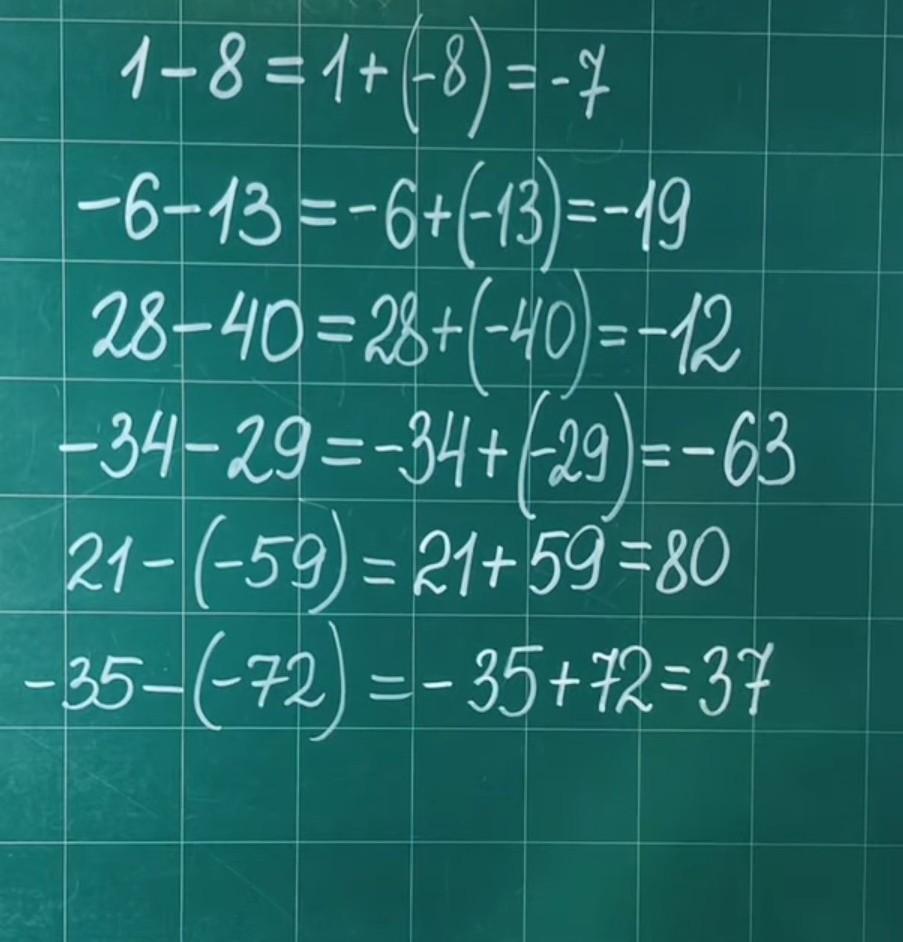 1-8=1+(-8)=-7
-6-13=-6+(-13)=-19
28-40=28+(-40)=-12
-34-29=-34+(-29)=-63
21-(-59)=21+59=80
-35-(-72)=-35+72=37